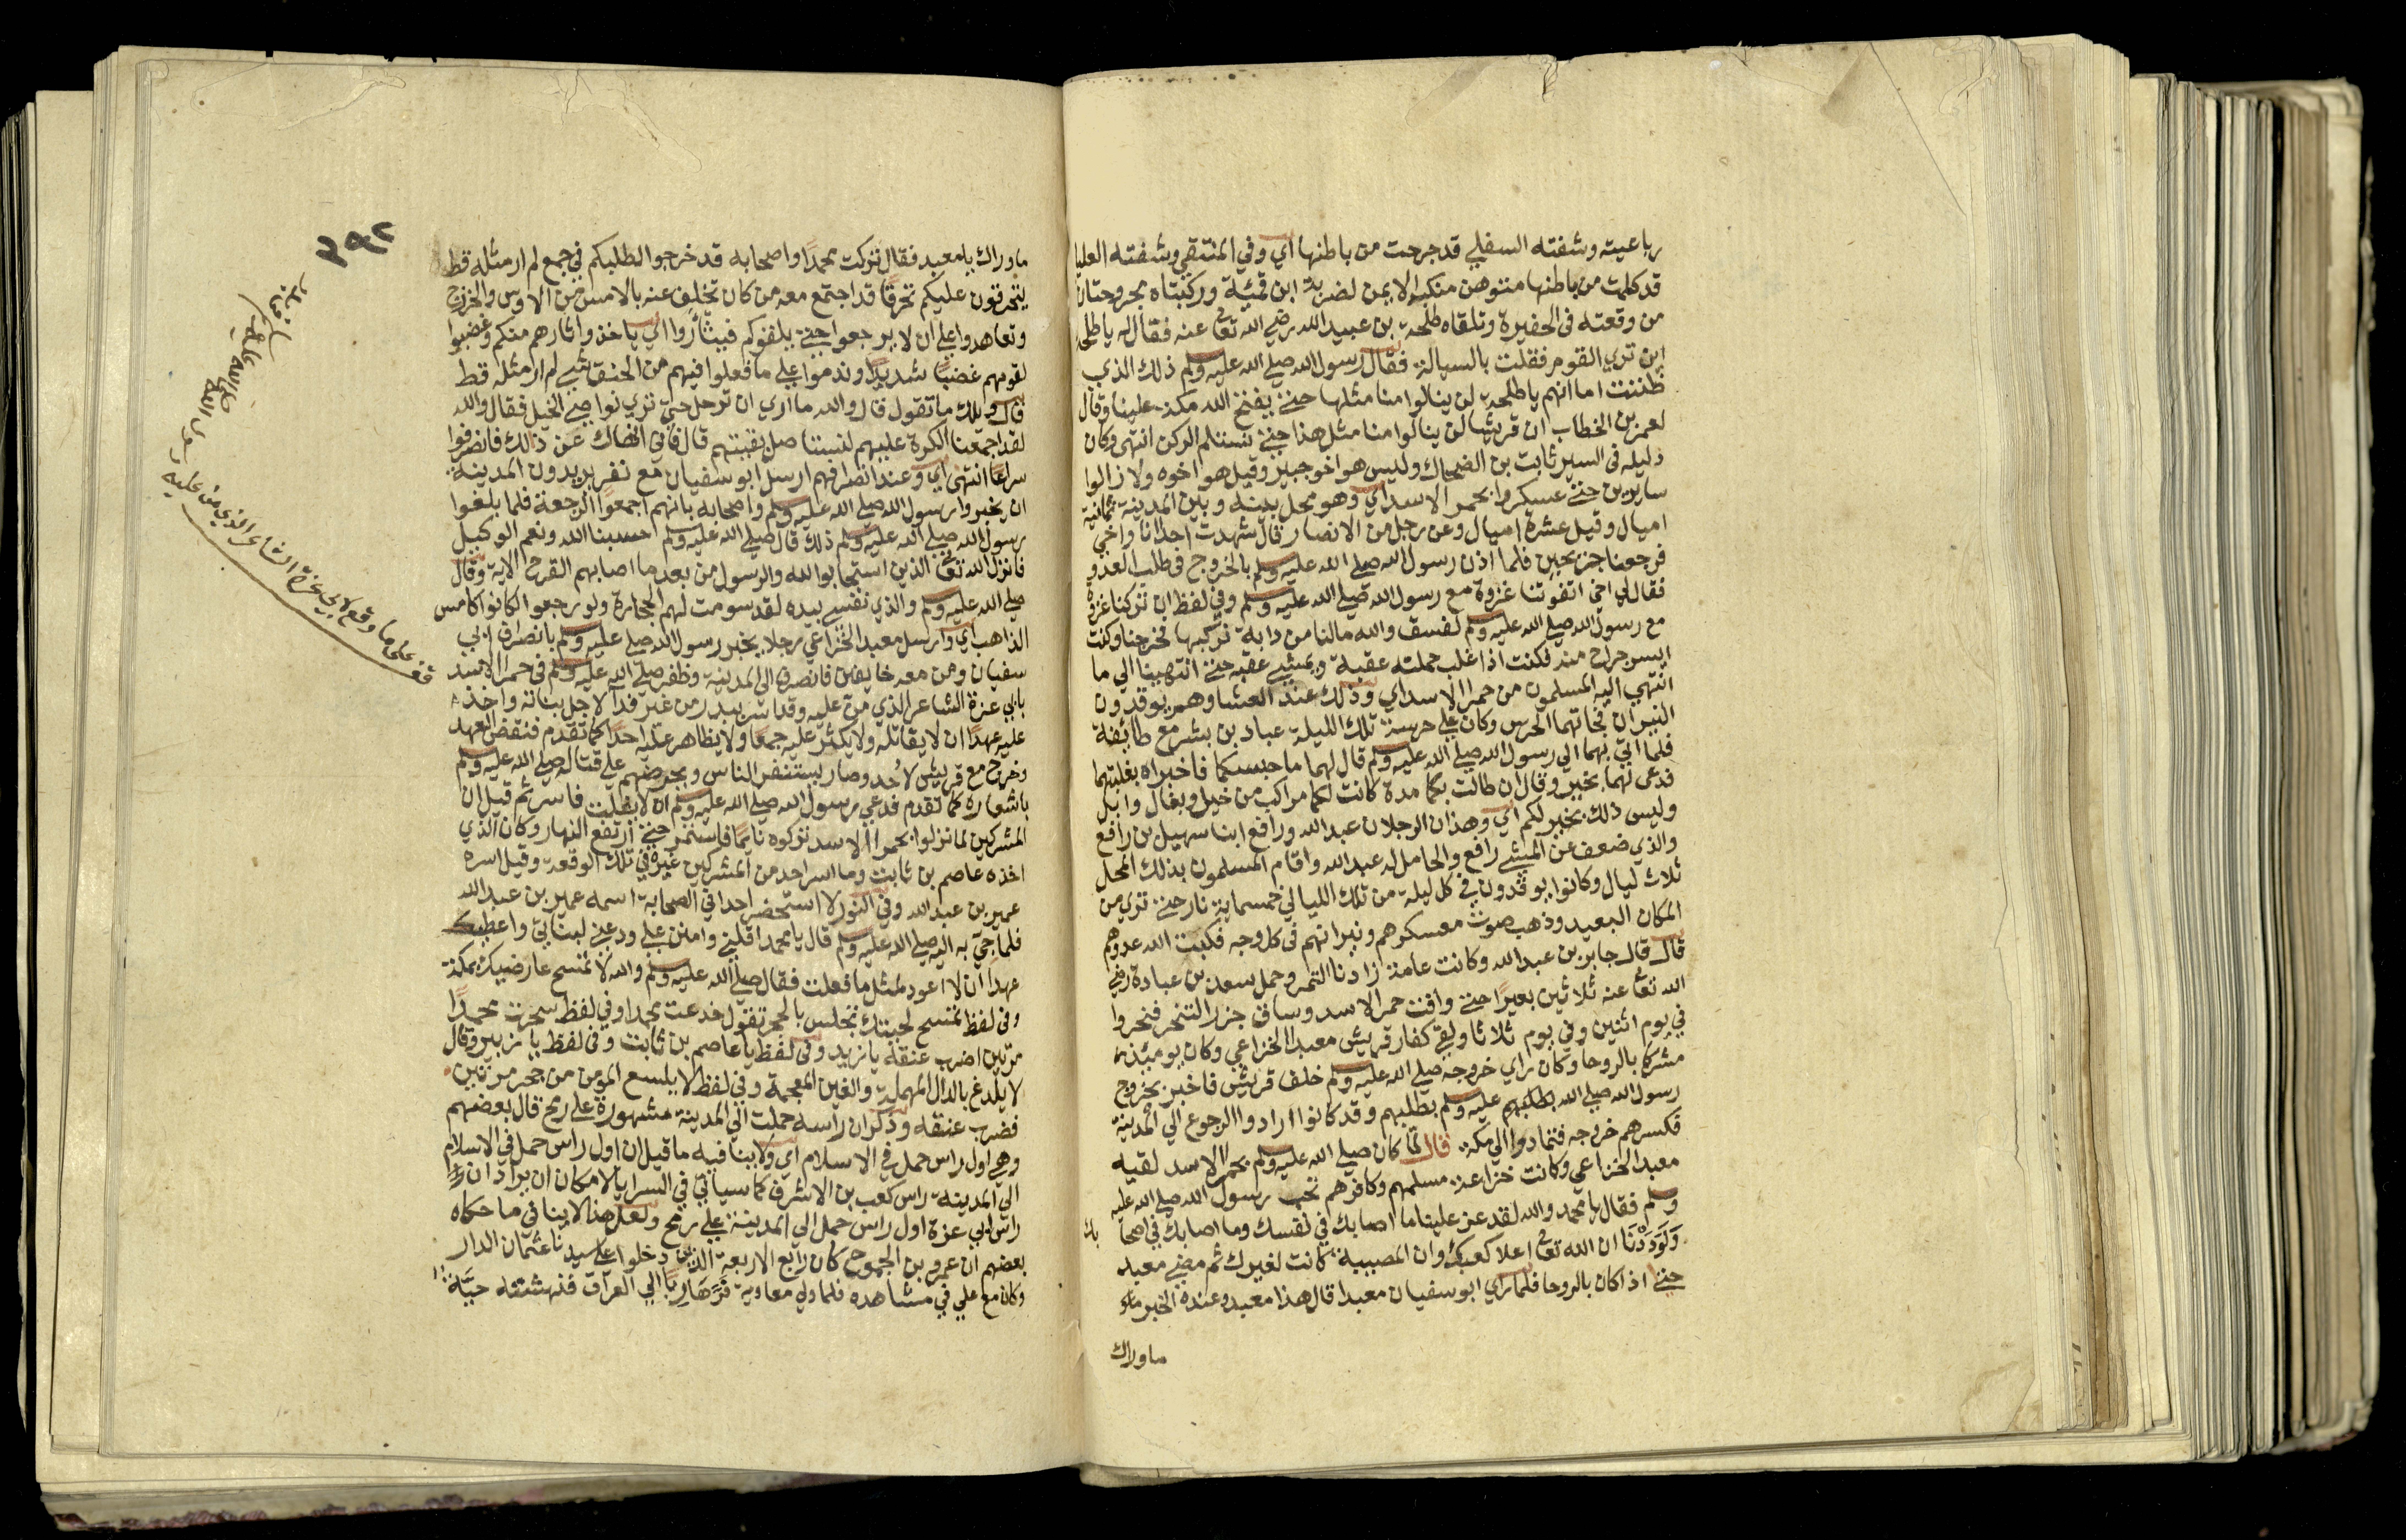 رباعيته وشفته السفلي قد جرحت من باطنها اي وفي المنتقي وشفته العليا
قد كلمت من باطنها متوهن منكبه الايمن لضربة ابن قمئة وركبتاه مجروحتان
من وقعته في الحفيرة وتلقاه طلحة بن عبيد الله رضي الله تعالى عنه فقال له يا طلحة
اين تري القوم فقلت بالسيالة فقال رسول الله صلى الله عليه وسلم ذلك الذي
ظننت اما انهم يا طلحة لن ينالوا منا مثلها حتى يفتح الله مكة علينا وقال
لعمر بن الخطاب ان قريشا لن ينالوا منا مثل هذا حتى نستلم الركن انتهى وكان
دليله في السير ثابت بن الضحاك وليس هو اخو جبير وقيل هو اخوه ولا زالوا
سايرين حتى عسكروا بحمر الاسد اي وهو محل بينه وبين المدينة ثمانية
اميال وقيل عشرة اميال وعن رجل من الانصار قال شهدت احدا انا واخي
فرجعنا جريحين فلما اذن رسول الله صلى الله عليه وسلم بالخروج في طلب العدو
فقال لي اخي اتفوتنا غزوة مع رسول الله صلى الله عليه وسلم وفي لفظ ان تركنا غزوة
مع رسول الله صلى الله عليه وسلم لفسق والله مالنا من دابة نركبها فخرجنا وكنت
ايسر جراح منه فكنت اذا غلب حملته عقبة ويمشي عقبه حتى انتهينا الي ما
انتهي اليه المسلمون من حمرا الاسد اي وذلك عند العشا وهم يوقدون
النيران فجاتهما الحرس وكان علي حرسة تلك الليلة عباد بن بشر مع طايفة
فلما اتي بهما الي رسول الله صلى الله عليه وسلم قال لهما ما حبسكما فاخبراه بغلبتهما
فدعي لهما بخير وقال ان طالت بكما مدة كانت لكما مراكب من خيل وبغال وابل
وليس ذلك بخير لكم اي وهذان الرجلان عبد الله ورافع ابنا سهيل بن رافع
والذي ضعف عن المشي رافع والحامل له عبد الله واقام المسلمون بذلك المحل
ثلاث ليال وكانوا يوقدون في كل ليلة من تلك الليالي خمسماية نار حتى تري من
المكان البعيد وذهب صوت معسكرهم ونيرانهم في كل وجه فكبت الله عدوهم
قال قال جابر بن عبد الله وكانت عامة زادنا التمر وحمل سعد بن عبادة رضي
الله تعالى عنه ثلاثين بعيرا حتى وافت حمر الاسد وساق جزر التنحر فنحروا
في يوم اثنين وفي يوم ثلاثا ولقي كفار قريش معبد الخزاعي وكان يومئذ
مشركا بالروحا وكان راي خروجه صلى الله عليه وسلم خلف قريش فاخبر بخروج
رسول الله صلى الله عليه وسلم بطلبهم وقد كانوا ارادوا الرجوع الي المدينة
فكسرهم خروجه فتمادوا الي مكة قال لما كان صلى الله عليه وسلم بحمرا الاسد لقيه
معبد الخزاعي وكانت خزاعة مسلمهم وكافرهم تحب رسول الله صلى الله عليه
وسلم فقال يا محمد والله لقد عز علينا ما اصابك في نفسك وما اصابك في اصحا بك
وَلَوَدِدْنَا ان الله تعالى اعلا كعبك وان المصيبة كانت لغيرك ثم مضي معبد
حتى اذا كان بالروحا فلما راي ابو سفيان معبدا قال هذا معبد وعنده الخبر
ماوراك
٣٩٢
ماوراك يا معبد فقال تركت محمدا واصحابه قد خرجوا لطلبكم في جمع لم ار مثله قط
يتحرقون عليكم تحرقا قد اجتمع معه من كان تخلف عنه بالامس من الاوس والخزرج
وتعاهدوا علي ان لا يرجعوا حتى يلقوكم فيثأروا اي ياخذوا ثارهم منكم وغضبوا
لقومهم غضبا شديدا وندموا علي ما فعلوا فيهم من الحنق شي لم ار مثله قط
قال ويلك ما تقول قال والله ما اري ان ترحل حتى تري نواصي الخيل فقال والله
لقد اجمعنا الكرة عليهم لنستاصل بقيتهم قال فاني انهاك عن ذلك فانصرفوا
سراعا انتهى اي وعند انصرافهم ارسل ابو سفيان مع نفر يريدون المدينة
ان يخبروا رسول الله صلى الله عليه وسلم واصحابه بانهم اجمعوا الرجعة فلما بلغوا
رسول الله صلى الله عليه وسلم ذلك قال صلى الله عليه وسلم احسبنا الله ونعم الوكيل
فانزل الله تعالى الذين استجابوا لله والرسول من بعد ما اصابهم القرح الاية وقال
صلى الله عليه وسلم والذي نفسي بيده لقد سومت لهم الحجارة ولو رجعوا لكانوا كامس
الذاهب اي وارسل معبد الخزاعي رجلا يخبر رسول الله صلى عليه وسلم بانصراف ابي
سفيان ومن معه خايفين فانصرف الي المدينة وظفر صلى الله عليه وسلم في حمرا الاسد
بابي عزة الشاعر الذي من عليه وقد اسر ببدر من غير فدا لاجل بناته واخذ
عليه عهدا ان لا يقاتله ولا يكثر عليه جمعا ولا يظاهر عليه احدا كما تقدم فنقض العهد
وخرج مع قريش لأحد وصار يستنفر الناس ويحرضهم علي قتاله صلى الله عليه وسلم
باشعاره كما تقدم فدعي رسول الله صلى الله عليه وسلم ان لا يفلت فاسر ثم قيل ان
المشركين لما نزلوا بحمرا الاسد تركوه نايما فاستمر حتى ارتفع النهار وكان الذي
اخذه عاصم بن ثابت وما اسر احد من المشركين غيره في تلك الوقعة وقيل اسره
عمير بن عبد الله وفي النور لا استحضر احدا في الصحابة اسمه عمير بن عبد الله
فلما جي به اليه صلى الله عليه وسلم قال يا محمد اقلني وامنن علي ودعني لبناتي واعطيك
عهدا ان لا اعود لمثل ما فعلت فقال صلى الله عليه وسلم والله لا تمسح عارضيك بمكة
وفي لفظ تمسح لحيتك تجلس بالحجر تقول خدعت محمدا وفي لفظ سحرت محمدًا
مرتين اضرب عنقه يا زيد وفي لفظ يا عاصم بن ثابت وفي لفظ يا زبير وقال
لا يلدغ بالدال المهملة والغين المعجمة وفي لفظ لا يلسع المومن من جحر مرتين
فضرب عنقه وذكر ان راسه حملت الي المدينة مشهورة علي رمح قال بعضهم
وهي اول راس حمل في الاسلام اي ولا ينافيه ما قيل ان اول راس حمل في الاسلام
الي المدينة راس كعب بن الاشرف كما سياتي في السرايا لامكان ان يراد ان
راس ابي عزة اول راس حمل الي المدينة علي رمح ولعل هذا لا ينافي ما حكاه
بعضهم ان عمرو بن الجموح كان رابع الاربعة الذين دخلوا علي سيدنا عثمان الدار
وكان مع علي في مشاهده فلما ولي معاوية فَرَّ هَارِبًا الي العراق فنهشته حيَّة
قف علي ما وقع لابي عزة الشاعر الذي من عليه
رسول الله
صلى الله عليه
وسلم